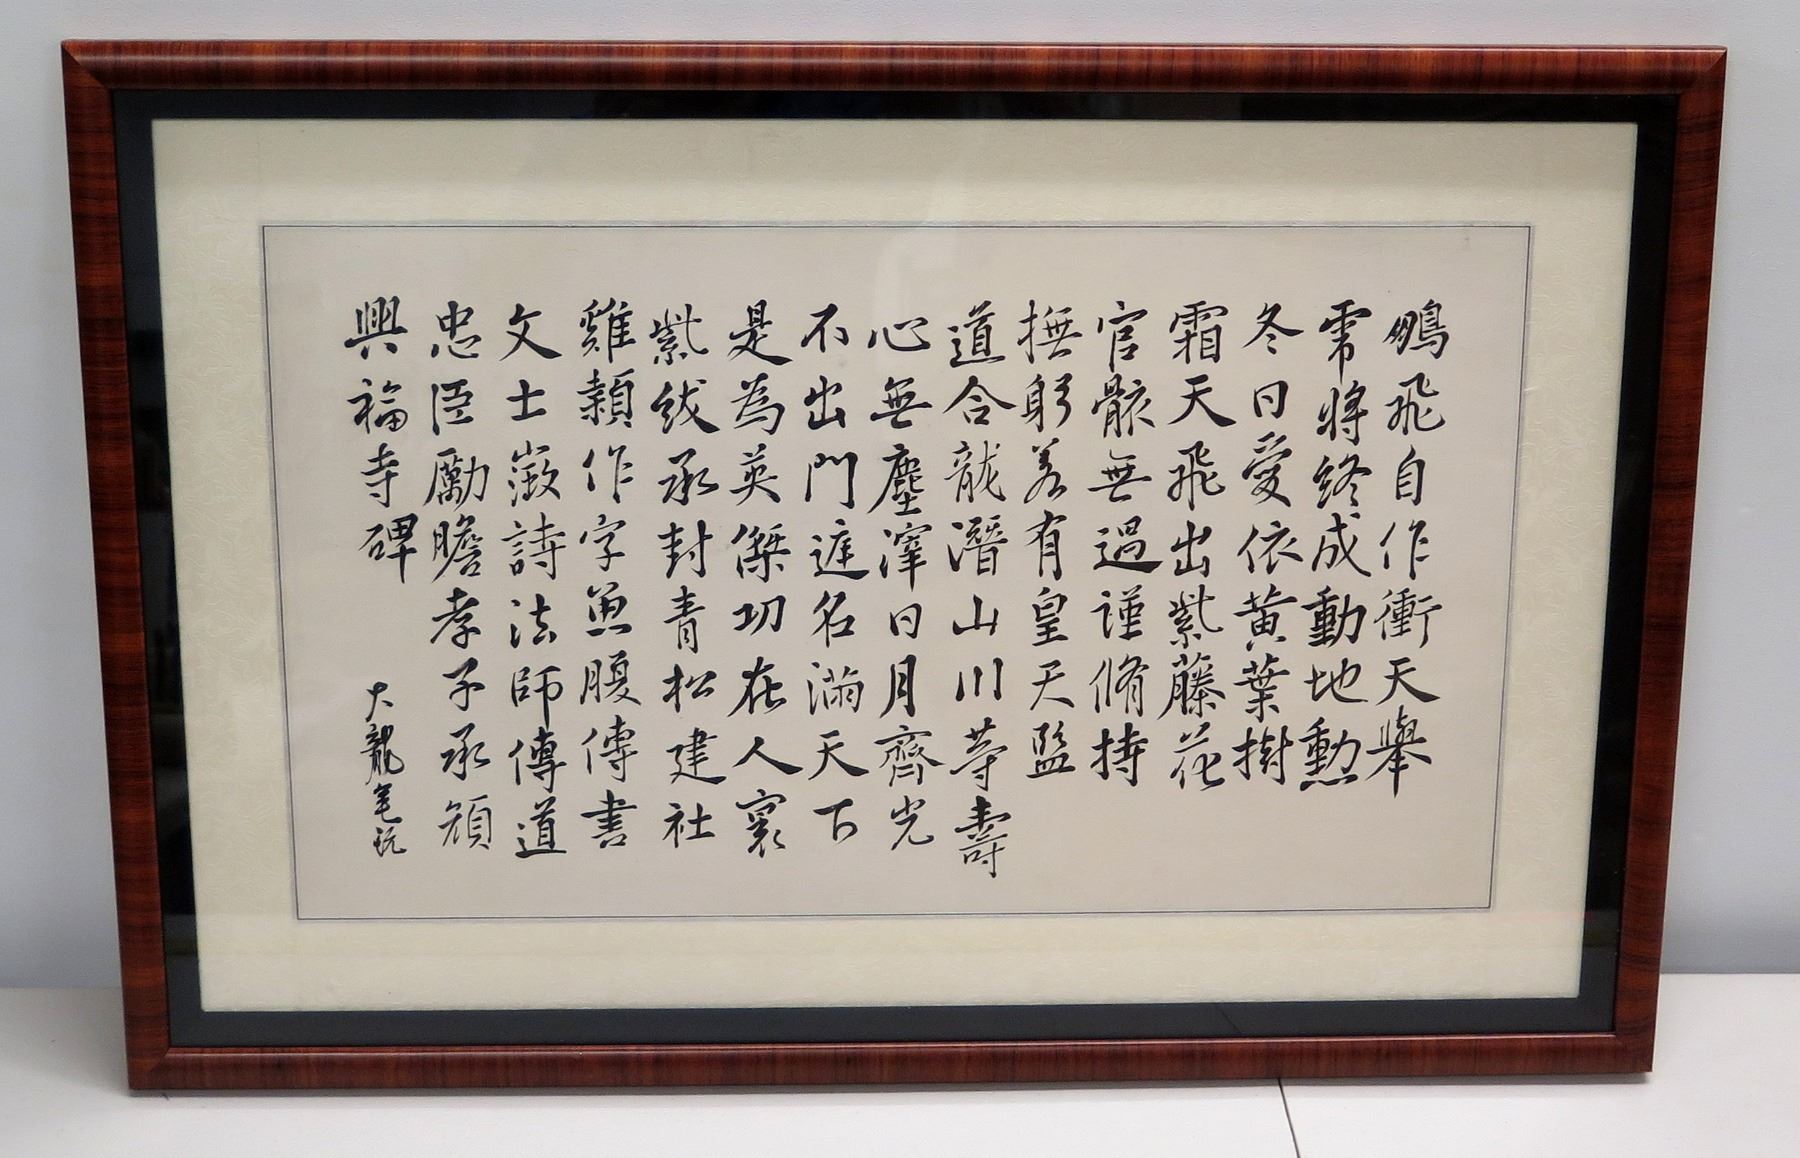 鵬飛自作衝天舉
霄將終成動地勲
冬日愛依黃葉樹
霜天飛出紫藤花
官骸無過謹脩持
撫躬若有皇天監
道合龍潛山川等壽
心無塵滓日月齊光
不出門庭名滿天下
是為英傑功在人寰
紫紱承封青松建社
雞頴作字魚腹傳書
文士澂詩法師傳道
忠臣勵膽孝子承顔
興福寺碑
大龍年玩